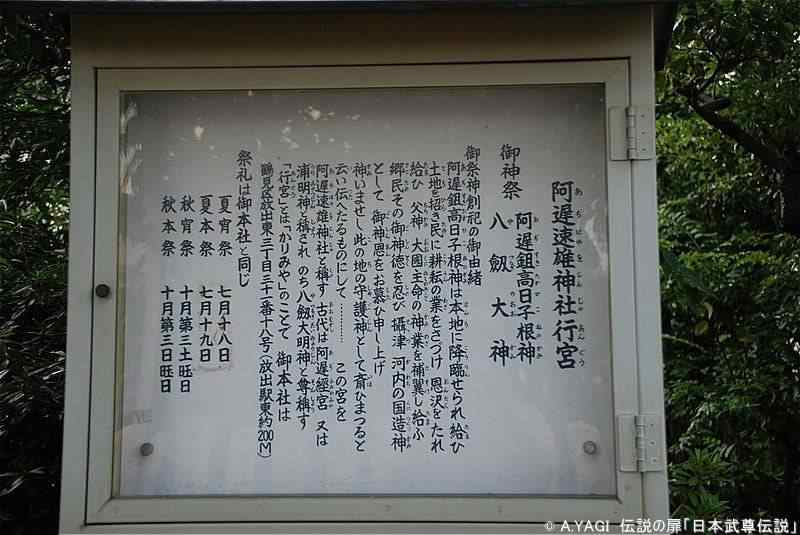 阿遅速雄神社行宮
御神祭 阿遅鉏高日子根神
八劔大神
御祭神創祀の御由緒
阿遅鉏高日子根神は本地に降臨せられ給ひ
土地を拓き民に耕耘の業をさづけ 恩沢をたれ
給ひ 父神 大国主命の神業を補翼し給ふ
郷民その御神徳を忍び 攝津 河内の国造神
として 御神恩をお慕ひ申し上げ
神いませし此の地の守護神として斎ひまつると
云い伝へたるものにして……… この宮を
阿遅速雄神社と稱す 古代は阿遅經宮 又は
浦明神と稱され のち八劔大明神と尊稱す
「行宮」とは「かりみや」のことで 御本社は
鶴見区放出東三丁目三十一番十八号(放出駅東約200M)
祭礼は御本社と同じ
夏宵祭 七月十八日
夏本祭 七月十九日
秋宵祭 十月第三土旺日
秋本祭 十月第三日旺日
© A.YAGI 伝説の扉「日本武尊伝説」